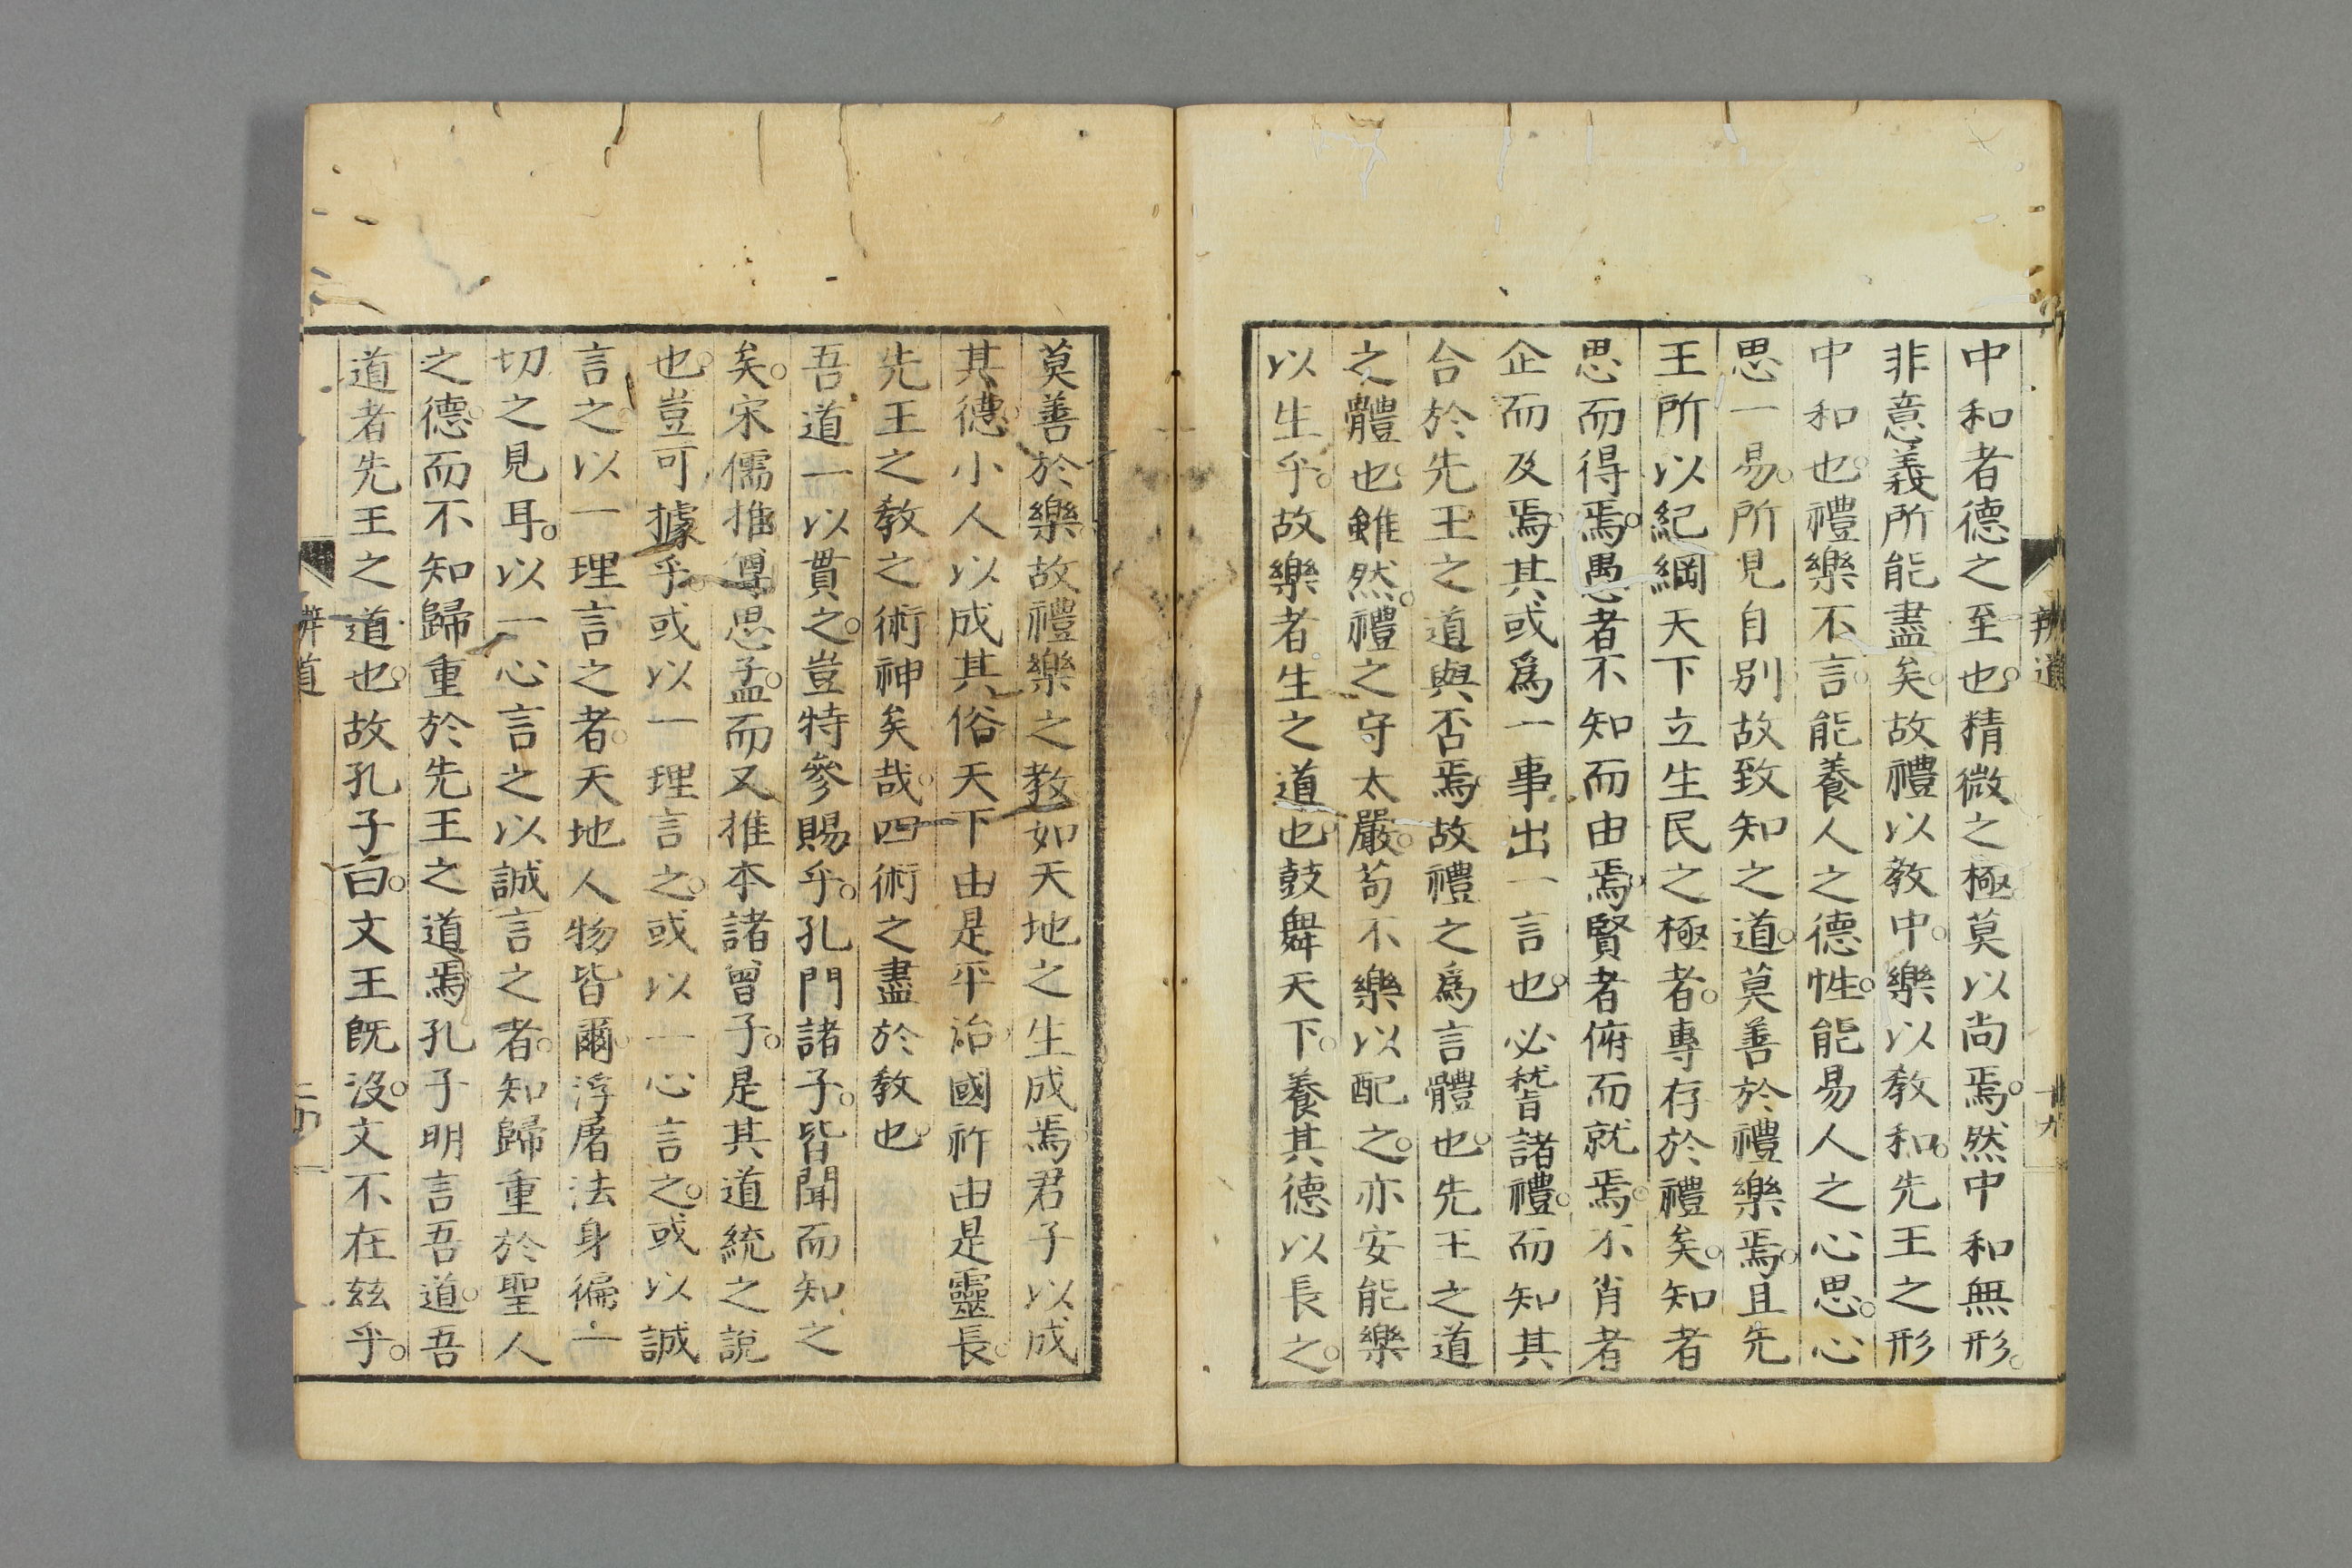 辨道
十九
中和者德之至也。精微之極莫以尚焉。然中和無形。
非意義所能盡矣。故禮以教中。樂以教和。先王之形
中和也。禮樂不言。能養人之德性。能易人之心思。心
思一易。所見自別。故致知之道。莫善於禮樂焉。且先
王所以紀綱天下立生民之極者。專存於禮矣。知者
思而得焉。愚者不知而由焉。賢者俯而就焉。不肖者
企而及焉。其或爲一事出一言也。必稽諸禮。而知其
合於先王之道與否焉。故禮之爲言體也。先王之道
之體也。雖然。禮之守太嚴。苟不樂以配之。亦安能樂
以生乎。故樂者。生之道也。鼓舞天下。養其德以長之。
莫善於樂。故禮樂之教。如天地之生成焉。君子以成
其德。小人以成其俗。天下由是平治。國祚由是靈長。
先王之教之術神矣哉。四術之盡於教也。
吾道一以貫之。豈特參賜乎。孔門諸子。皆聞而知之
矣。宋儒推尊思孟。而又推本諸曾子。是其道統之說
也。豈可據乎。或以一理言之。或以一心言之。或以誠
言之。以一理言之者。天地人物皆爾。浮屠法身徧一
切之見耳。以一心言之以誠言之者。知歸重於聖人
之德。而不知歸重於先王之道焉。孔子明言吾道。吾
道者先王之道也。故孔子曰。文王既沒。文不在茲乎。
辨道